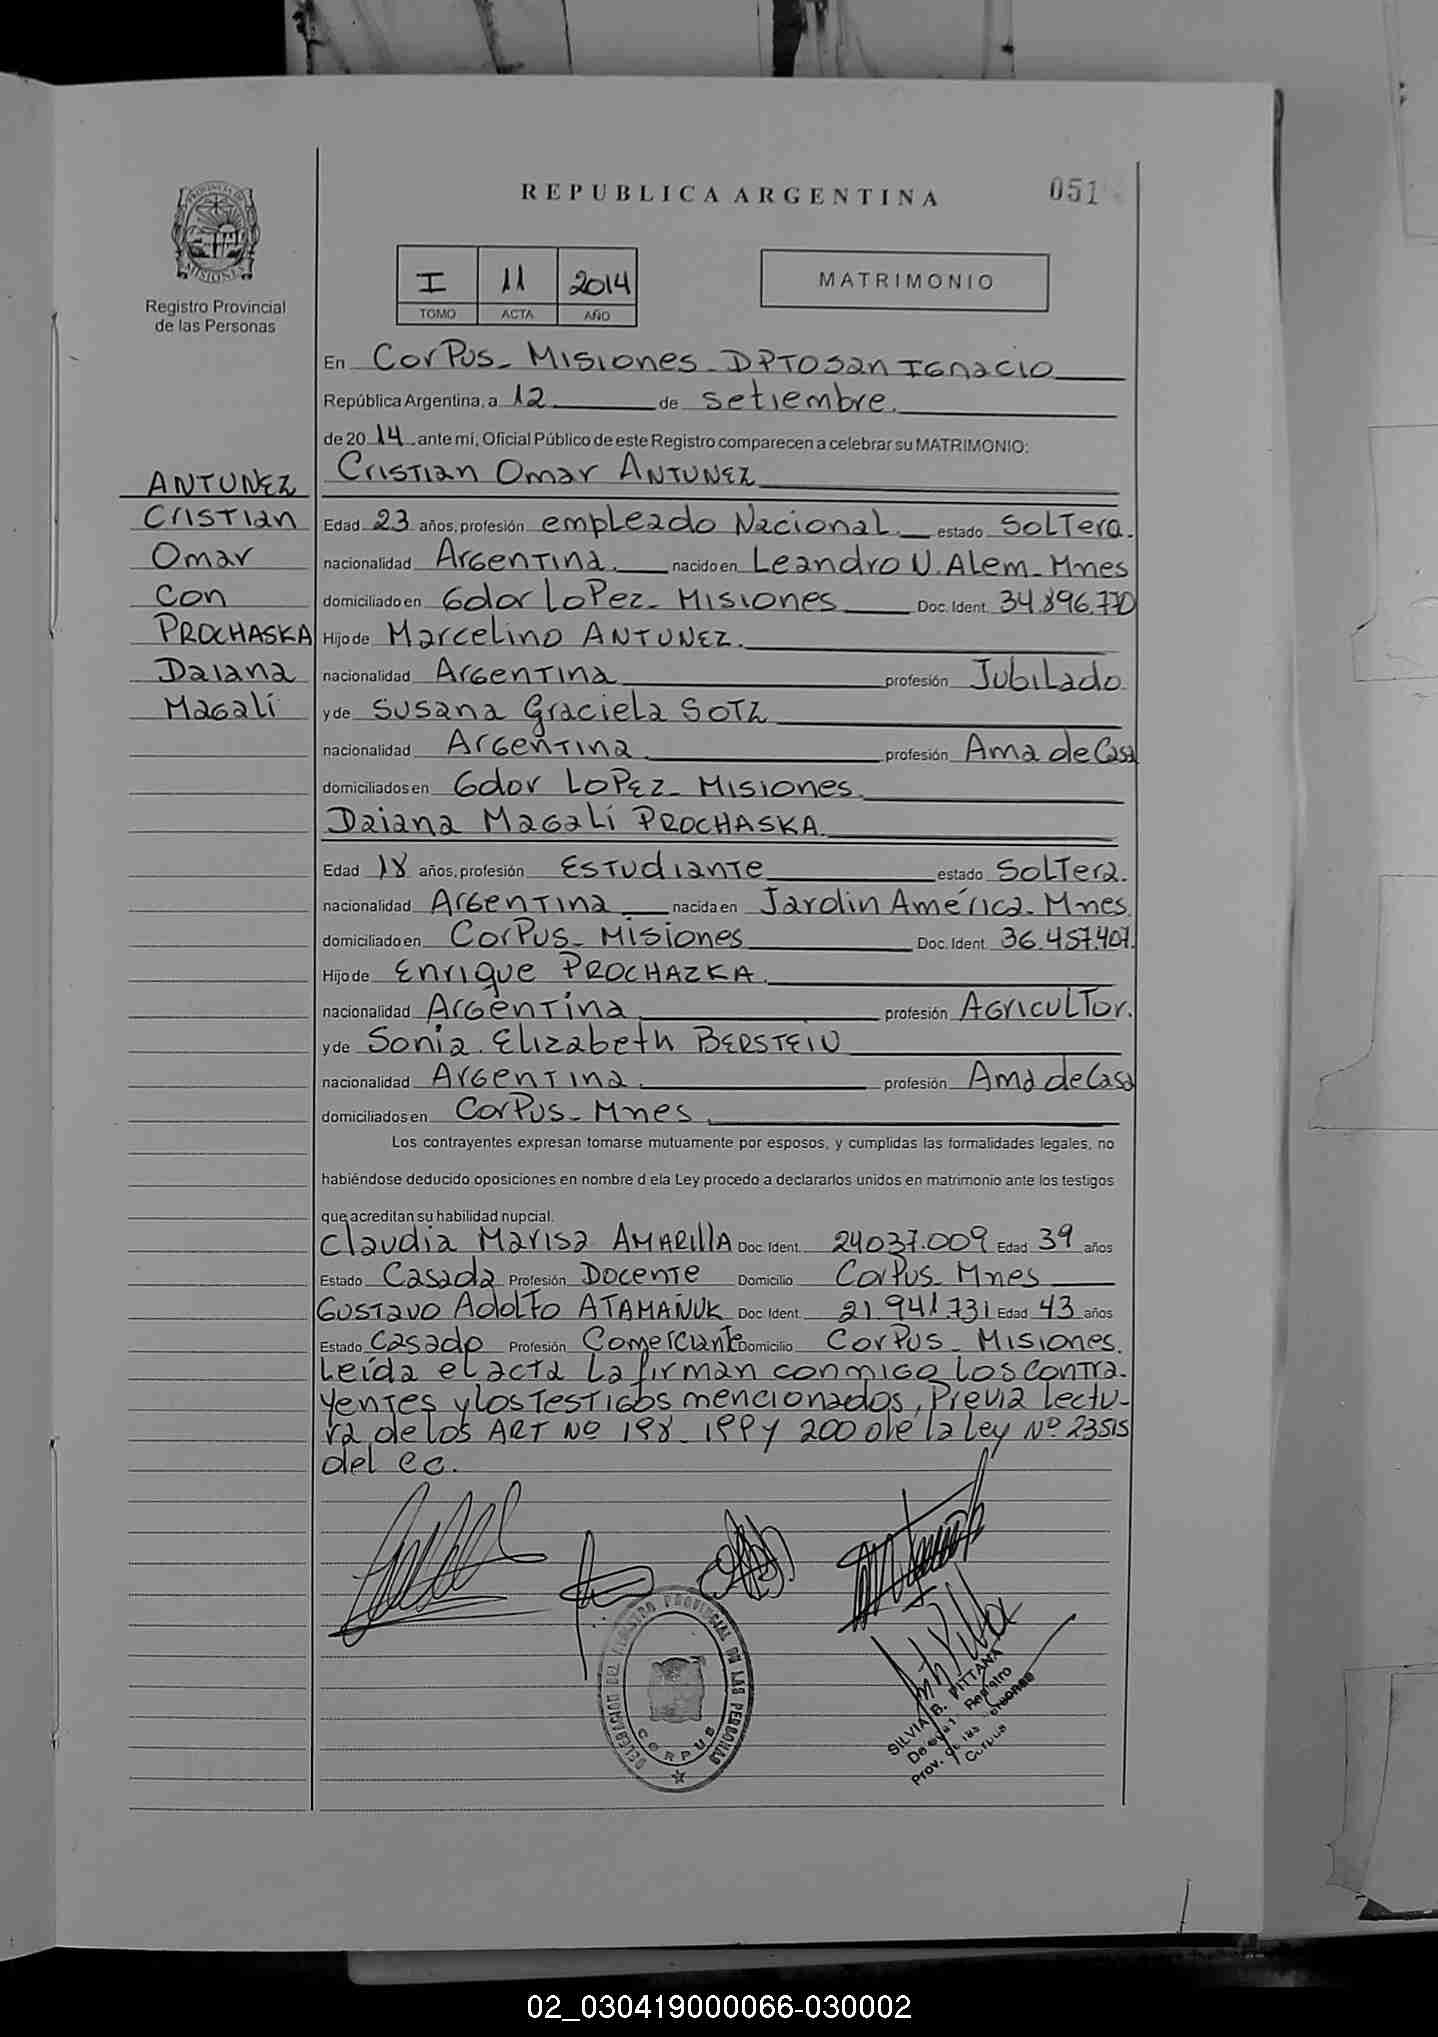 REPUBLICA ARGENTINA
051
PROVINCIA DE MISIONES
Registro Provincial
de las Personas
I 11 2014
TOMO ACTA AÑO
MATRIMONIO
En Corpus - Misiones - DPTO San Ignacio
República Argentina, a 12 de setiembre.
de 2014 ante mí, Oficial Público de este Registro comparecen a celebrar su MATRIMONIO:
ANTUNEZ
Cristian
Omar
con
PROCHASKA
Daiana
Magalí
Cristian Omar ANTUNEZ
Edad 23 años, profesión empleado Nacional estado Soltera.
nacionalidad Argentina. nacido en Leandro N. Alem - Mnes
domiciliado en Gdor Lopez - Misiones Doc. Ident. 34.896.770
Hijo de Marcelino ANTUNEZ.
nacionalidad Argentina profesión Jubilado.
y de Susana Graciela SOTZ
nacionalidad Argentina profesión Ama de Casa
domiciliados en Gdor Lopez - Misiones.
Daiana Magalí PROCHASKA.
Edad 18 años, profesión Estudiante estado Soltera.
nacionalidad Argentina nacida en Jardin América - Mnes.
domiciliado en Corpus - Misiones Doc. Ident. 36.457.407.
Hijo de Enrique PROCHAZKA.
nacionalidad Argentina profesión Agricultor.
y de Sonia Elizabeth BERSTEIN
nacionalidad Argentina. profesión Ama de Casa
domiciliados en Corpus - Mnes.
Los contrayentes expresan tomarse mutuamente por esposos, y cumplidas las formalidades legales, no
habiéndose deducido oposiciones en nombre d ela Ley procedo a declararlos unidos en matrimonio ante los testigos
que acreditan su habilidad nupcial.
Claudia Marisa AMARILLA Doc. Ident. 24037.009 Edad 39 años
Estado Casada Profesión Docente Domicilio Corpus - Mnes
Gustavo Adolfo ATAMAÑUK Doc. Ident. 21.941.731 Edad 43 años
Estado Casado Profesión Comerciante Domicilio Corpus - Misiones.
Leída el acta la firman conmigo los contra-
yentes y los testigos mencionados, previa lectu-
ra de los ART Nº 198 - 199 y 200 de la ley Nº 23515
del c.c.
DELEGACION DEL REGISTRO PROVINCIAL DE LAS PERSONAS
CORPUS
SILVIA B. PITTANA
Registro
Prov. de las
Corpus
02_030419000066-030002